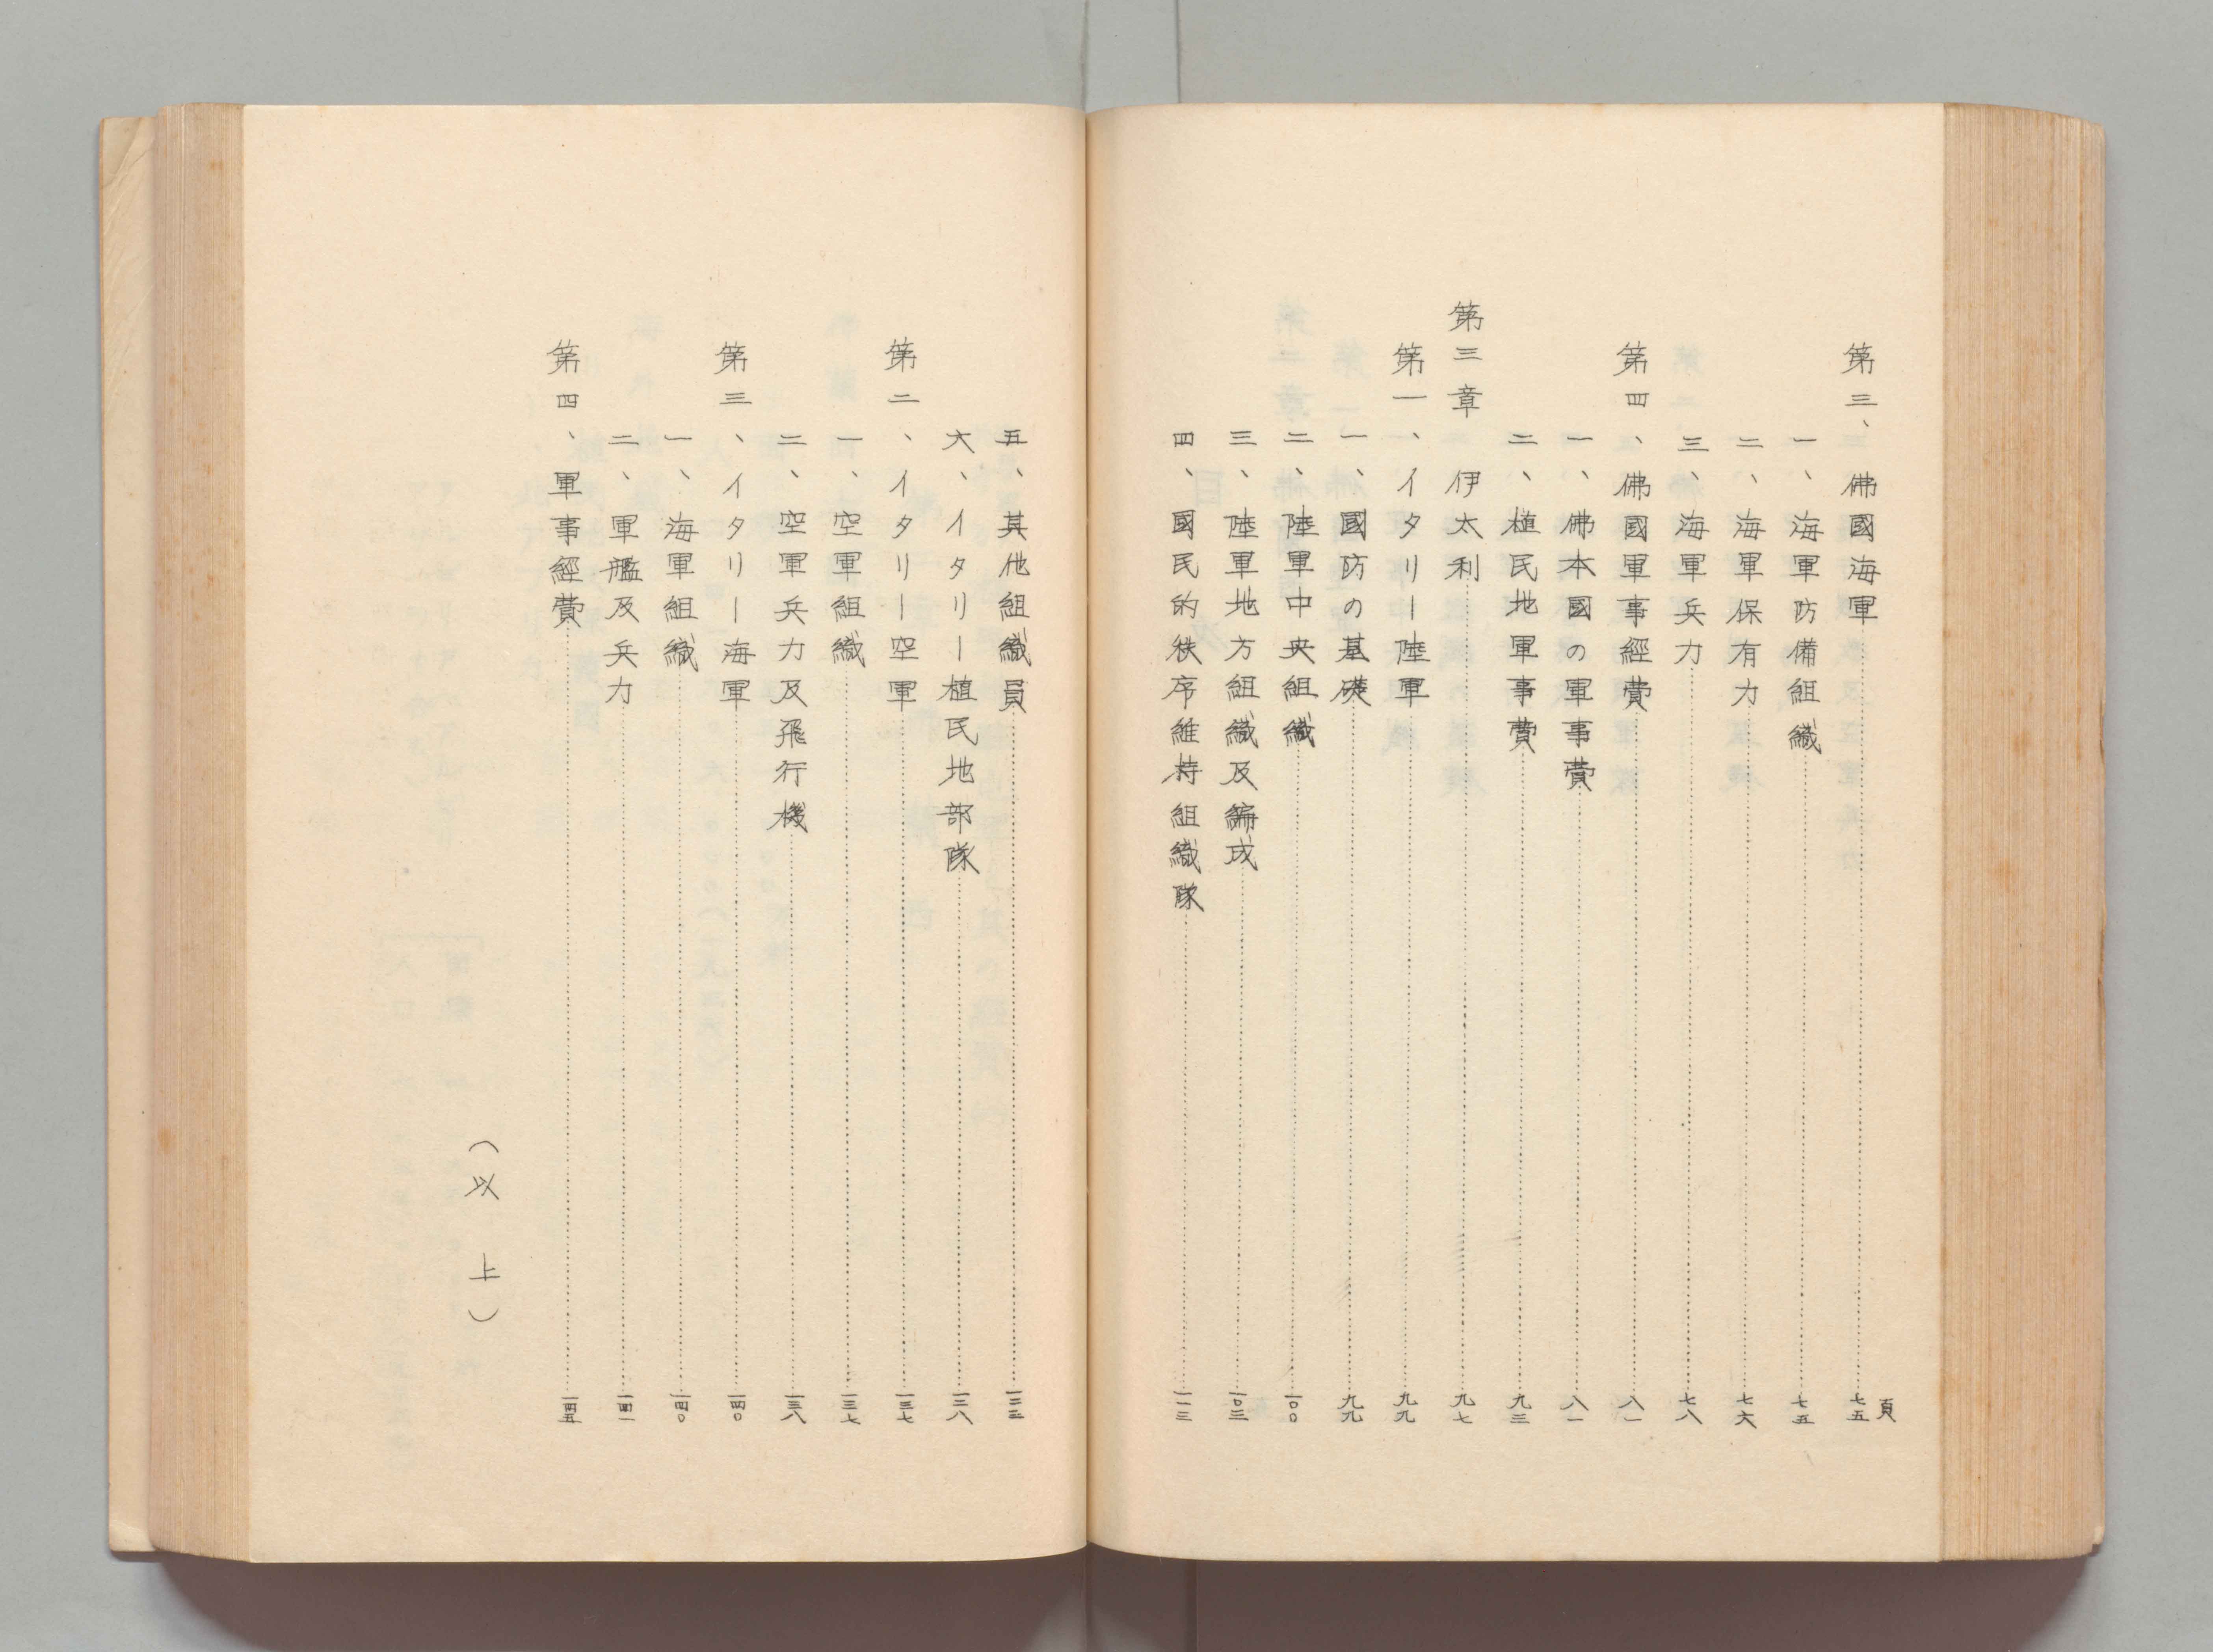 頁
第三、佛國海軍……七五
一、海軍防備組織……七五
二、海軍保有力……七六
三、海軍兵力……七八
第四、佛國軍事經費……八一
一、佛本國の軍事費……八一
二、植民地軍事費……九三
第三章 伊太利……九七
第一、イタリー陸軍……九九
一、國防の基礎……九九
二、陸軍中央組織……一〇〇
三、陸軍地方組織及編成……一〇三
四、國民的秩序維持組織隊……一一三
五、其他組織員……一三三
六、イタリー植民地部隊……一三八
第二、イタリー空軍……一三七
一、空軍組織……一三七
二、空軍兵力及飛行機……一三八
第三、イタリー海軍……一四〇
一、海軍組織……一四〇
二、軍艦及兵力……一四一
第四、軍事經費……一四五
（以上）